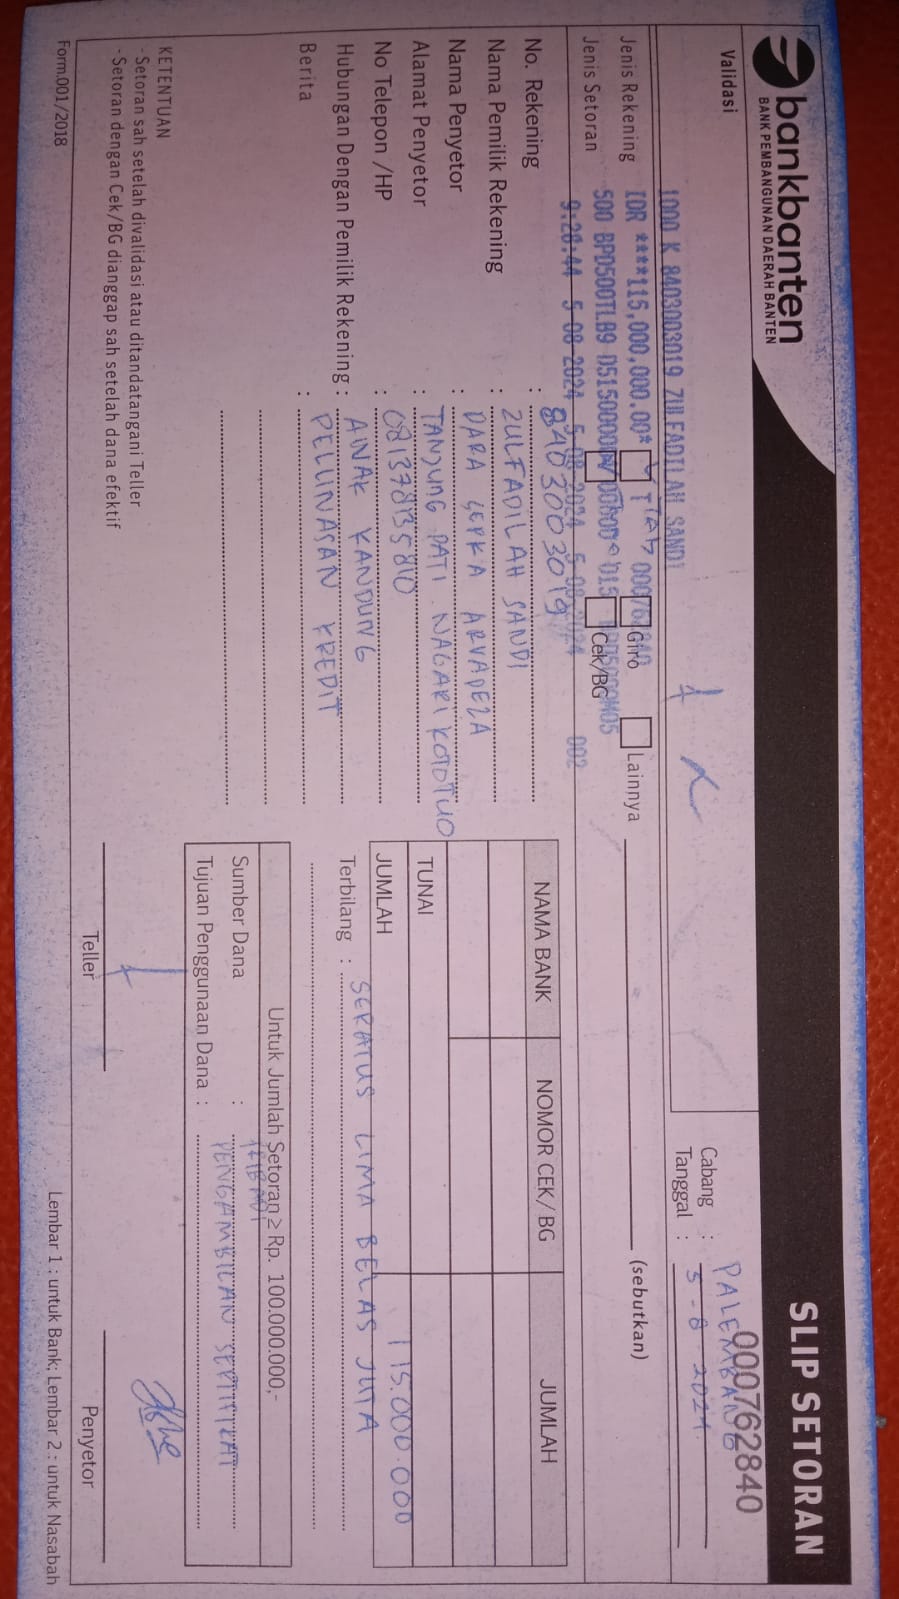 bankbanten
BANK PEMBANGUNAN DAERAH BANTEN
SLIP SETORAN
000762840
Validasi
1000 K 8403003019 ZULFADILAH SANDI
IDR ****115,000,000.00*
500 BPD500TLB9
9:28:44 5-08-2024 5-08-2024 002
Cabang : PALEMBANG
Tanggal : 5-8-2024
Jenis Rekening Giro Lainnya (sebutkan)
Jenis Setoran Cek/BG
No. Rekening : 8403003019
Nama Pemilik Rekening : ZULFADILAH SANDI
Nama Penyetor : DARA
Alamat Penyetor : TANJUNG PATI NAGARI KOTOTUO
No Telepon /HP : 081378135810
Hubungan Dengan Pemilik Rekening : ANAK KANDUNG
Berita : PELUNASAN KREDIT
NAMA BANK NOMOR CEK/ BG JUMLAH
TUNAI
JUMLAH 115.000.000
Terbilang : SERATUS LIMA BELAS JUTA
Untuk Jumlah Setoran ≥ Rp. 100.000.000,-
Sumber Dana :
Tujuan Penggunaan Dana : PENGAMBILAN SERTIFIKAT
KETENTUAN
- Setoran sah setelah divalidasi atau ditandatangani Teller
- Setoran dengan Cek/BG dianggap sah setelah dana efektif
Teller
Penyetor
Form.001/2018
Lembar 1 : untuk Bank; Lembar 2 : untuk Nasabah